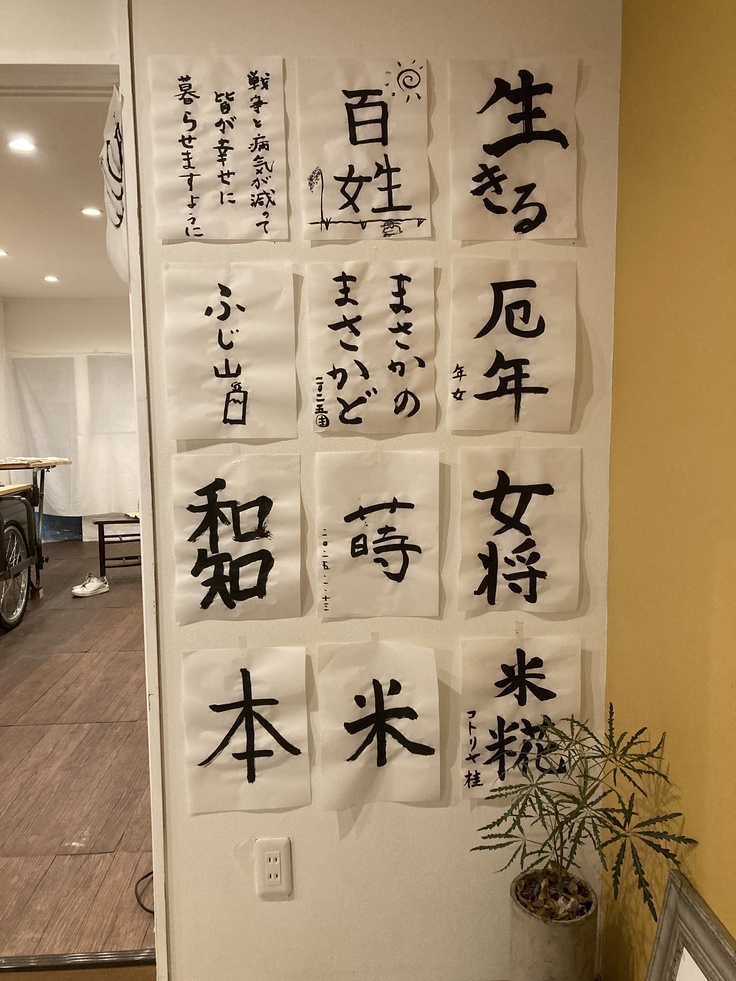 生
きる
百
姓
戦争と病気が減って
皆が幸せに
暮らせますように
厄
年
年女
まさかの
まさかど
二〇二五
ふじ山
女
将
蒔
二〇二五・一・十三
和
知
米
糀
コトリヤ桂
米
本